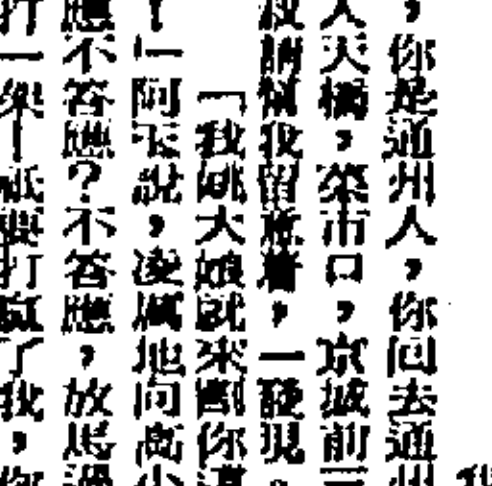 ，你是通州人，你回去通州
人天橋，菜市口，京城前三
請幫我留意着，一發現。
「我姚大娘就來割你
！」阿玉說，凌厲地向高
應不答應？不答應，放馬過
打一架—祇要打贏了我，你